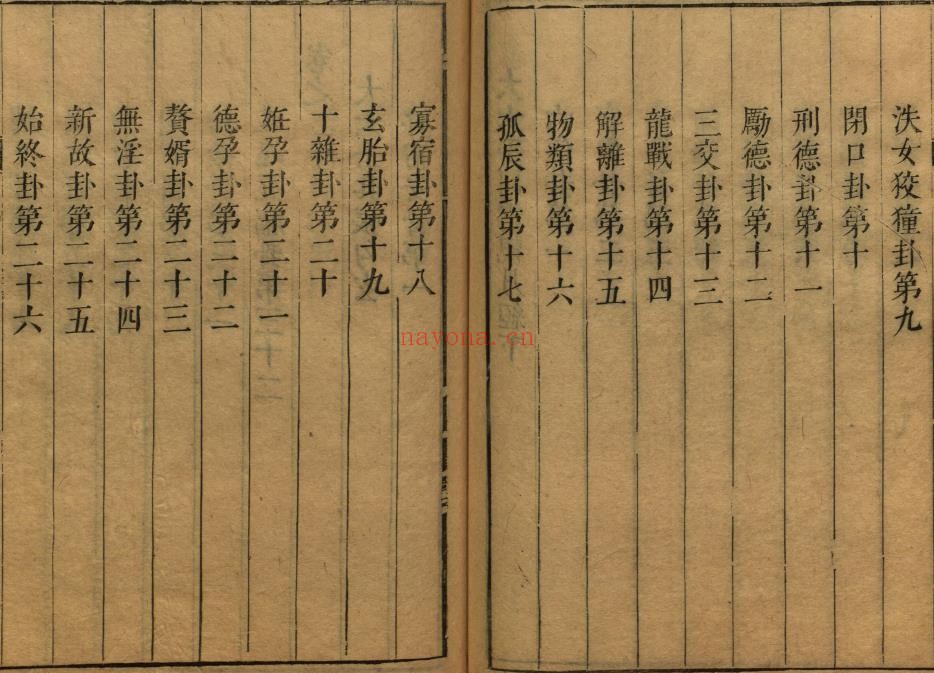 泆女狡獞卦第九
閉口卦第十
刑德卦第十一
勵德卦第十二
三交卦第十三
龍戰卦第十四
解離卦第十五
物類卦第十六
孤辰卦第十七
寡宿卦第十八
玄胎卦第十九
十雜卦第二十
姙孕卦第二十一
德孕卦第二十二
贅婿卦第二十三
無淫卦第二十四
新故卦第二十五
始終卦第二十六
nayona.cn